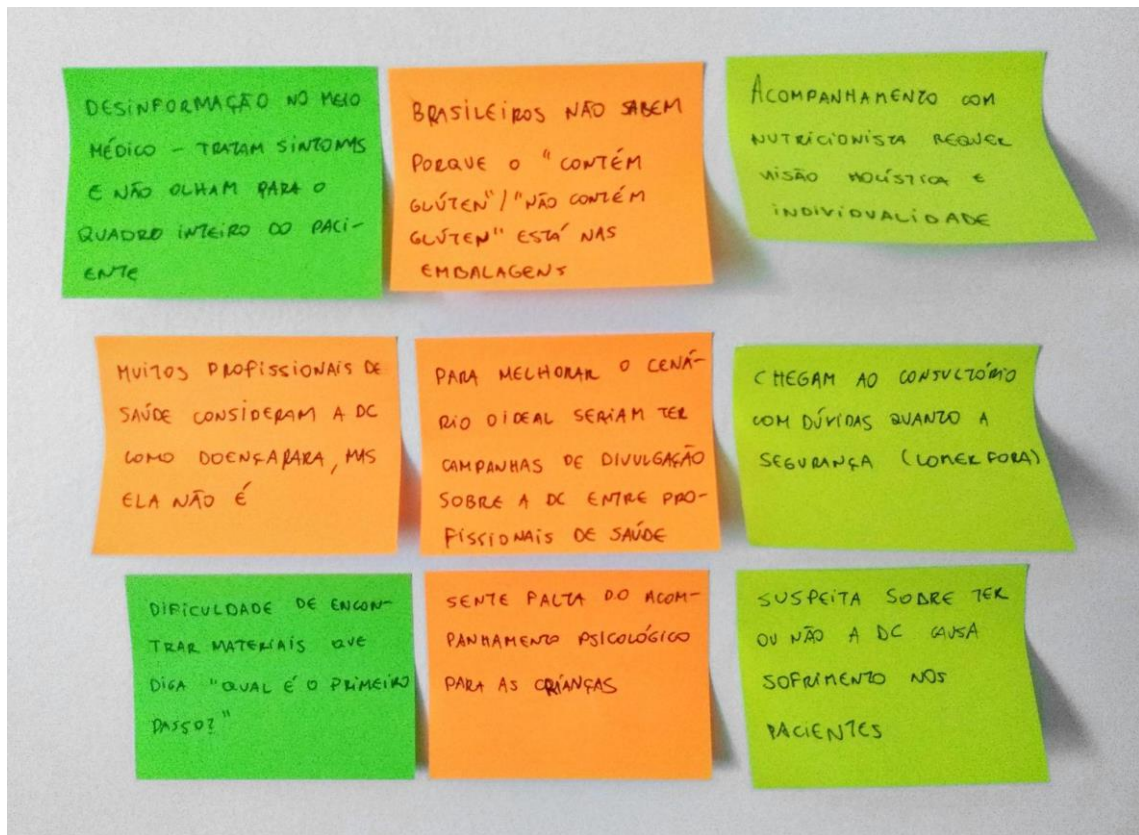 DESINFORMAÇÃO NO MEIO
MÉDICO – TRATAM SINTOMAS
E NÃO OLHAM PARA O
QUADRO INTEIRO DO PACI-
ENTE
BRASILEIROS NÃO SABEM
PORQUE O "CONTÉM
GLÚTEN"/"NÃO CONTÉM
GLÚTEN" ESTÁ NAS
EMBALAGENS
ACOMPANHAMENTO COM
NUTRICIONISTA REQUER
VISÃO HOLÍSTICA E
INDIVIDUALIDADE
MUITOS PROFISSIONAIS DE
SAÚDE CONSIDERAM A DC
COMO DOENÇA RARA, MAS
ELA NÃO É
PARA MELHORAR O CENÁ-
RIO O IDEAL SERIAM TER
CAMPANHAS DE DIVULGAÇÃO
SOBRE A DC ENTRE PRO-
FISSIONAIS DE SAÚDE
CHEGAM AO CONSULTÓRIO
COM DÚVIDAS QUANTO A
SEGURANÇA (COMER FORA)
DIFICULDADE DE ENCON-
TRAR MATERIAIS QUE
DIGA "QUAL É O PRIMEIRO
PASSO?"
SENTE FALTA DO ACOM-
PANHAMENTO PSICOLÓGICO
PARA AS CRIANÇAS
SUSPEITA SOBRE TER
OU NÃO A DC CAUSA
SOFRIMENTO NOS
PACIENTES